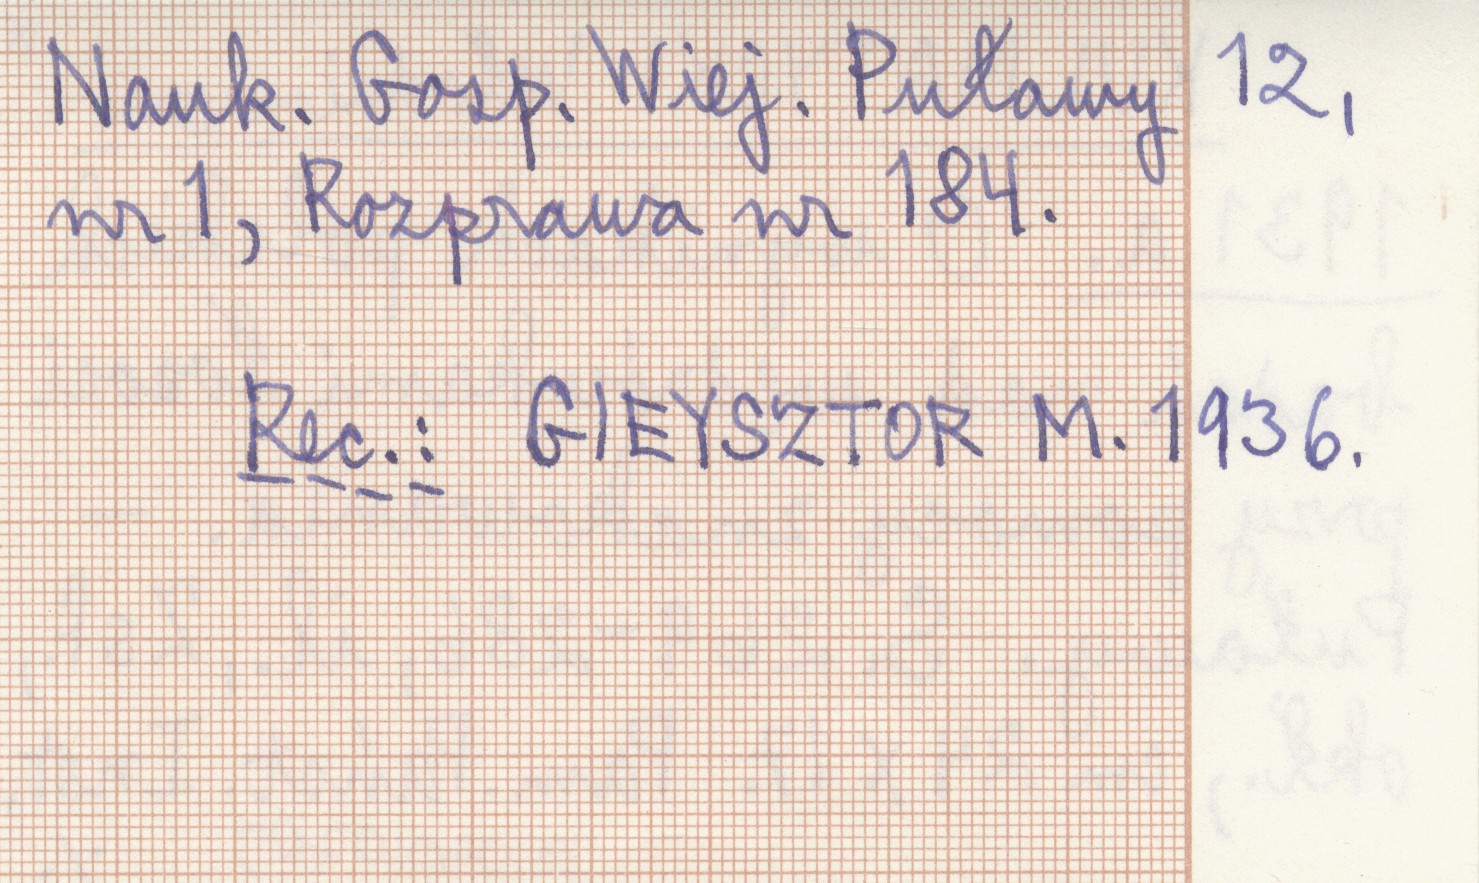 Nauk. Gosp. Wiej. Puławy 12,
nr 1, Rozprawa nr 184.
Rec.: GIEYSZTOR M. 1936.